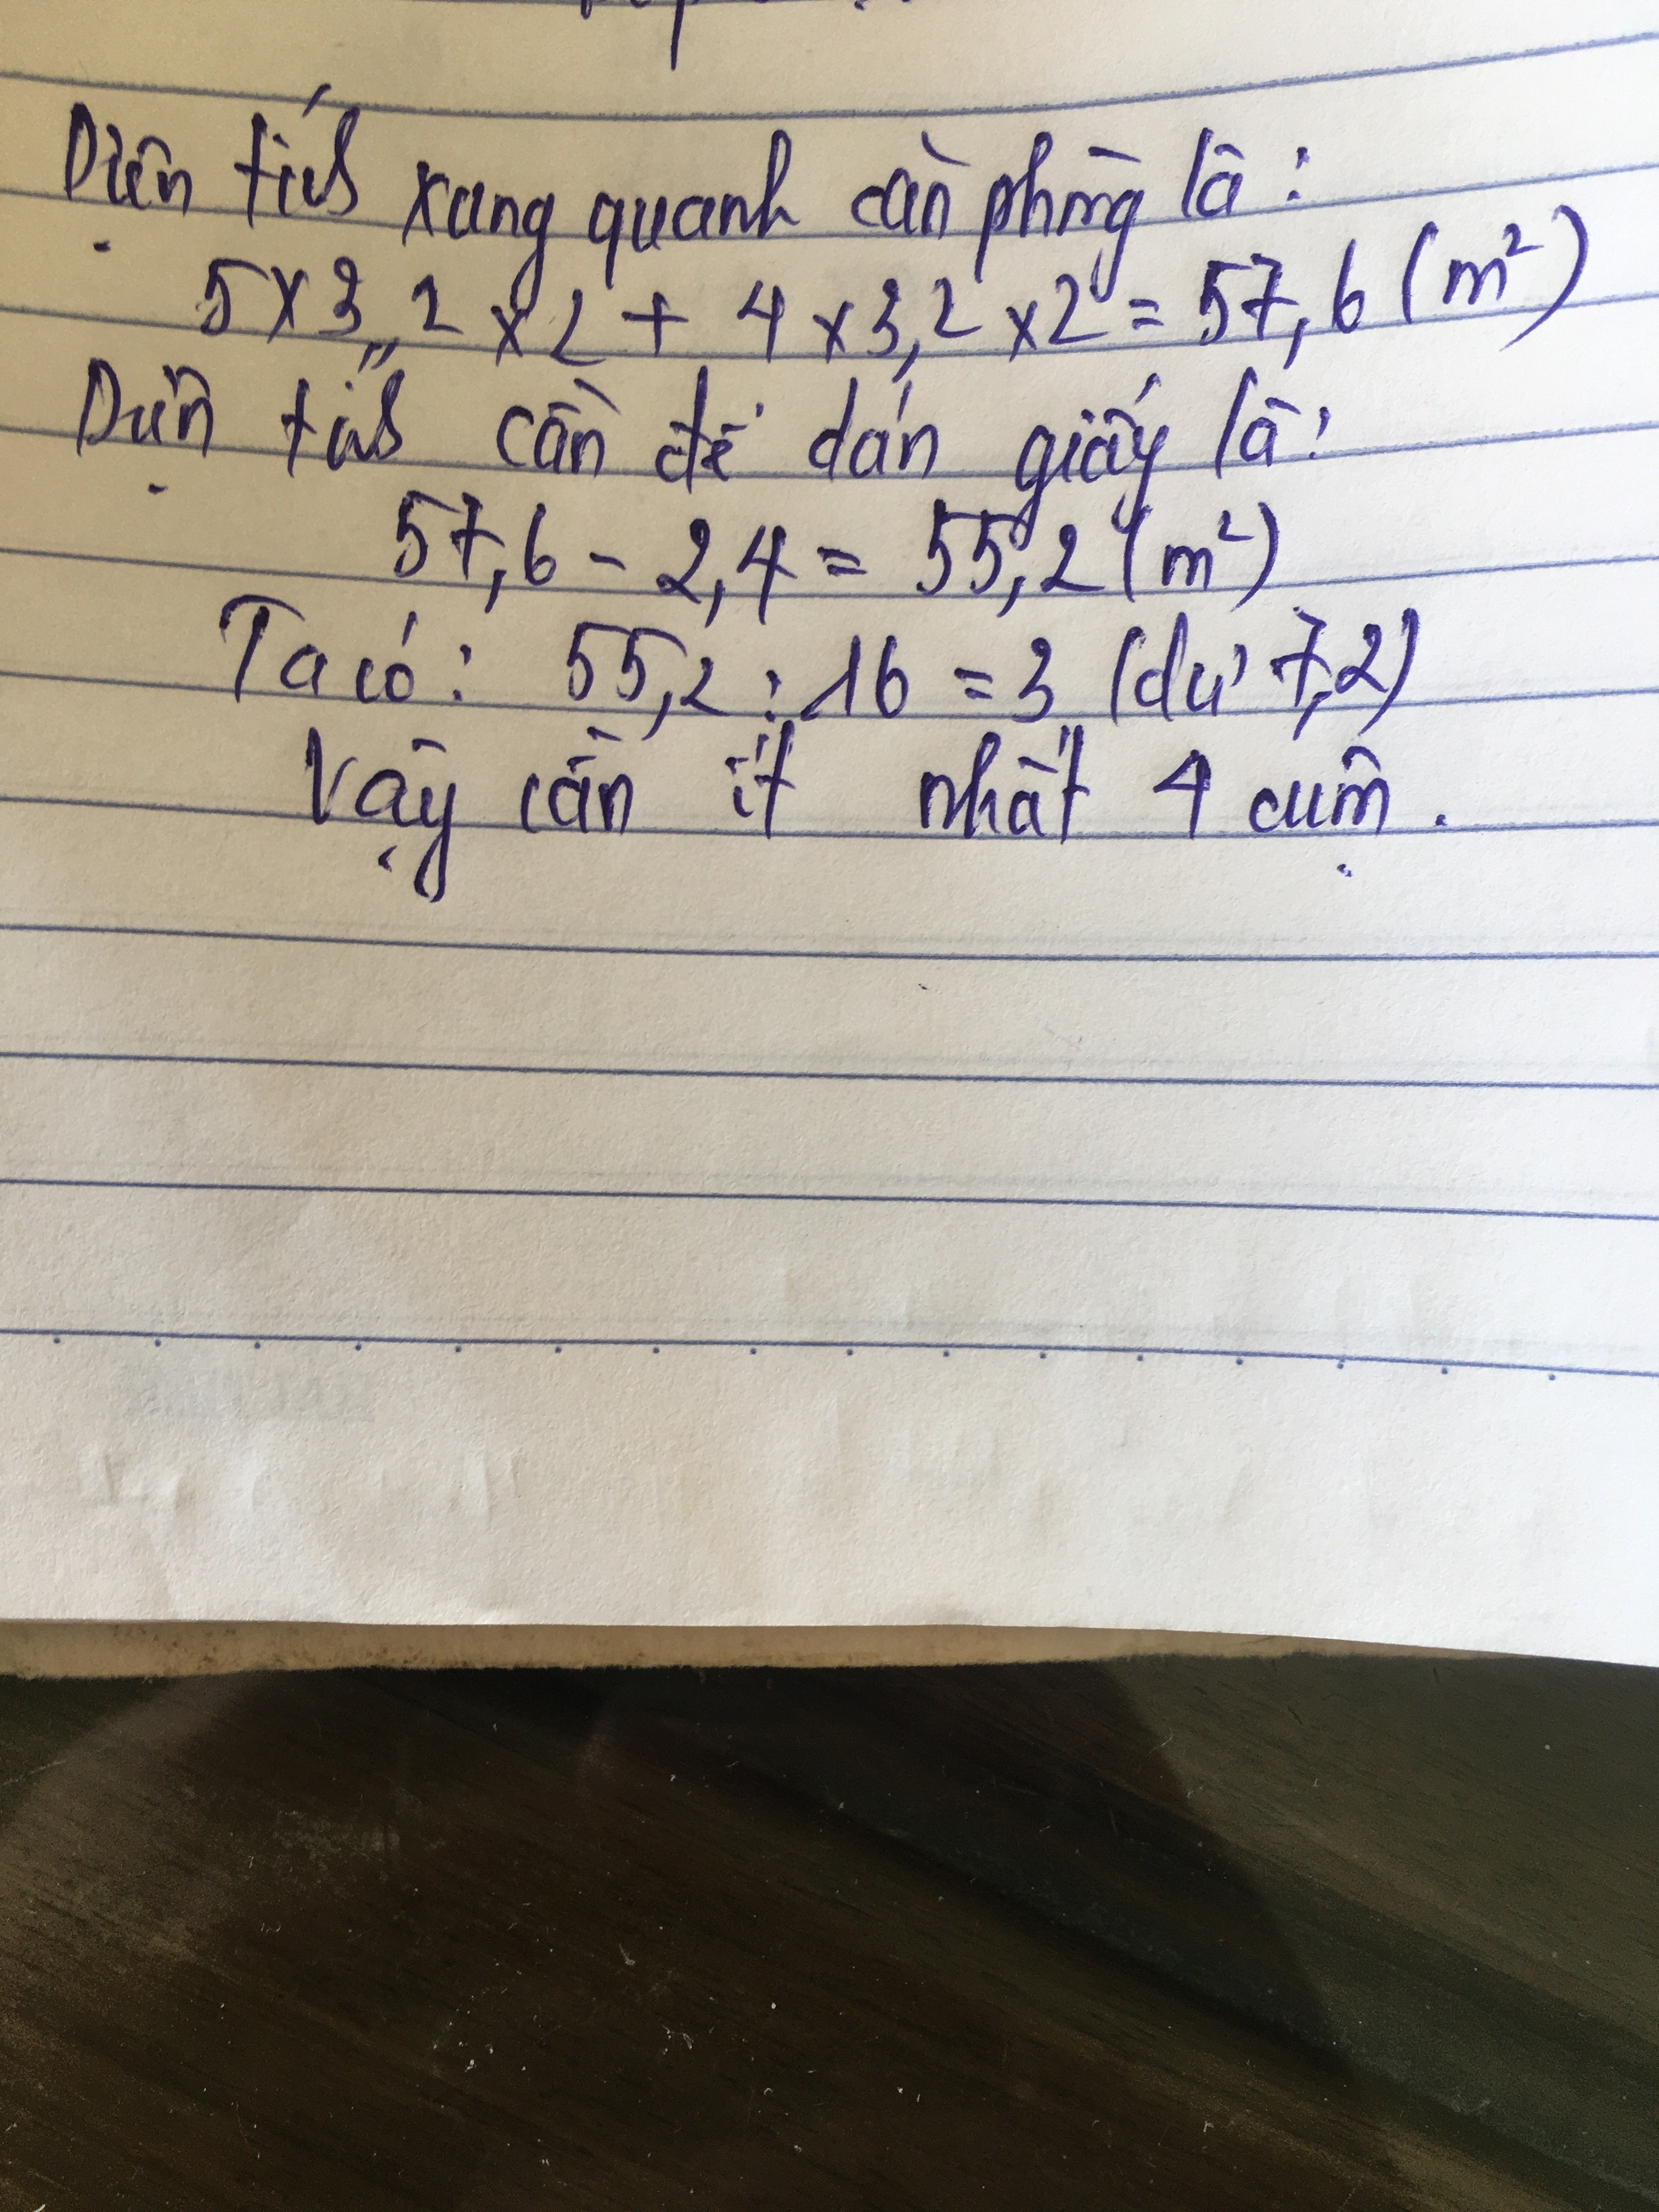 Diện tích xung quanh căn phòng là:
5 x 3,2 x 2 + 4 x 3,2 x 2 = 57,6 (m²)
Diện tích cần để dán giấy là:
57,6 - 2,4 = 55,2 (m²)
Ta có: 55,2 : 16 = 3 (dư 7,2)
Vậy cần ít nhất 4 cuộn.